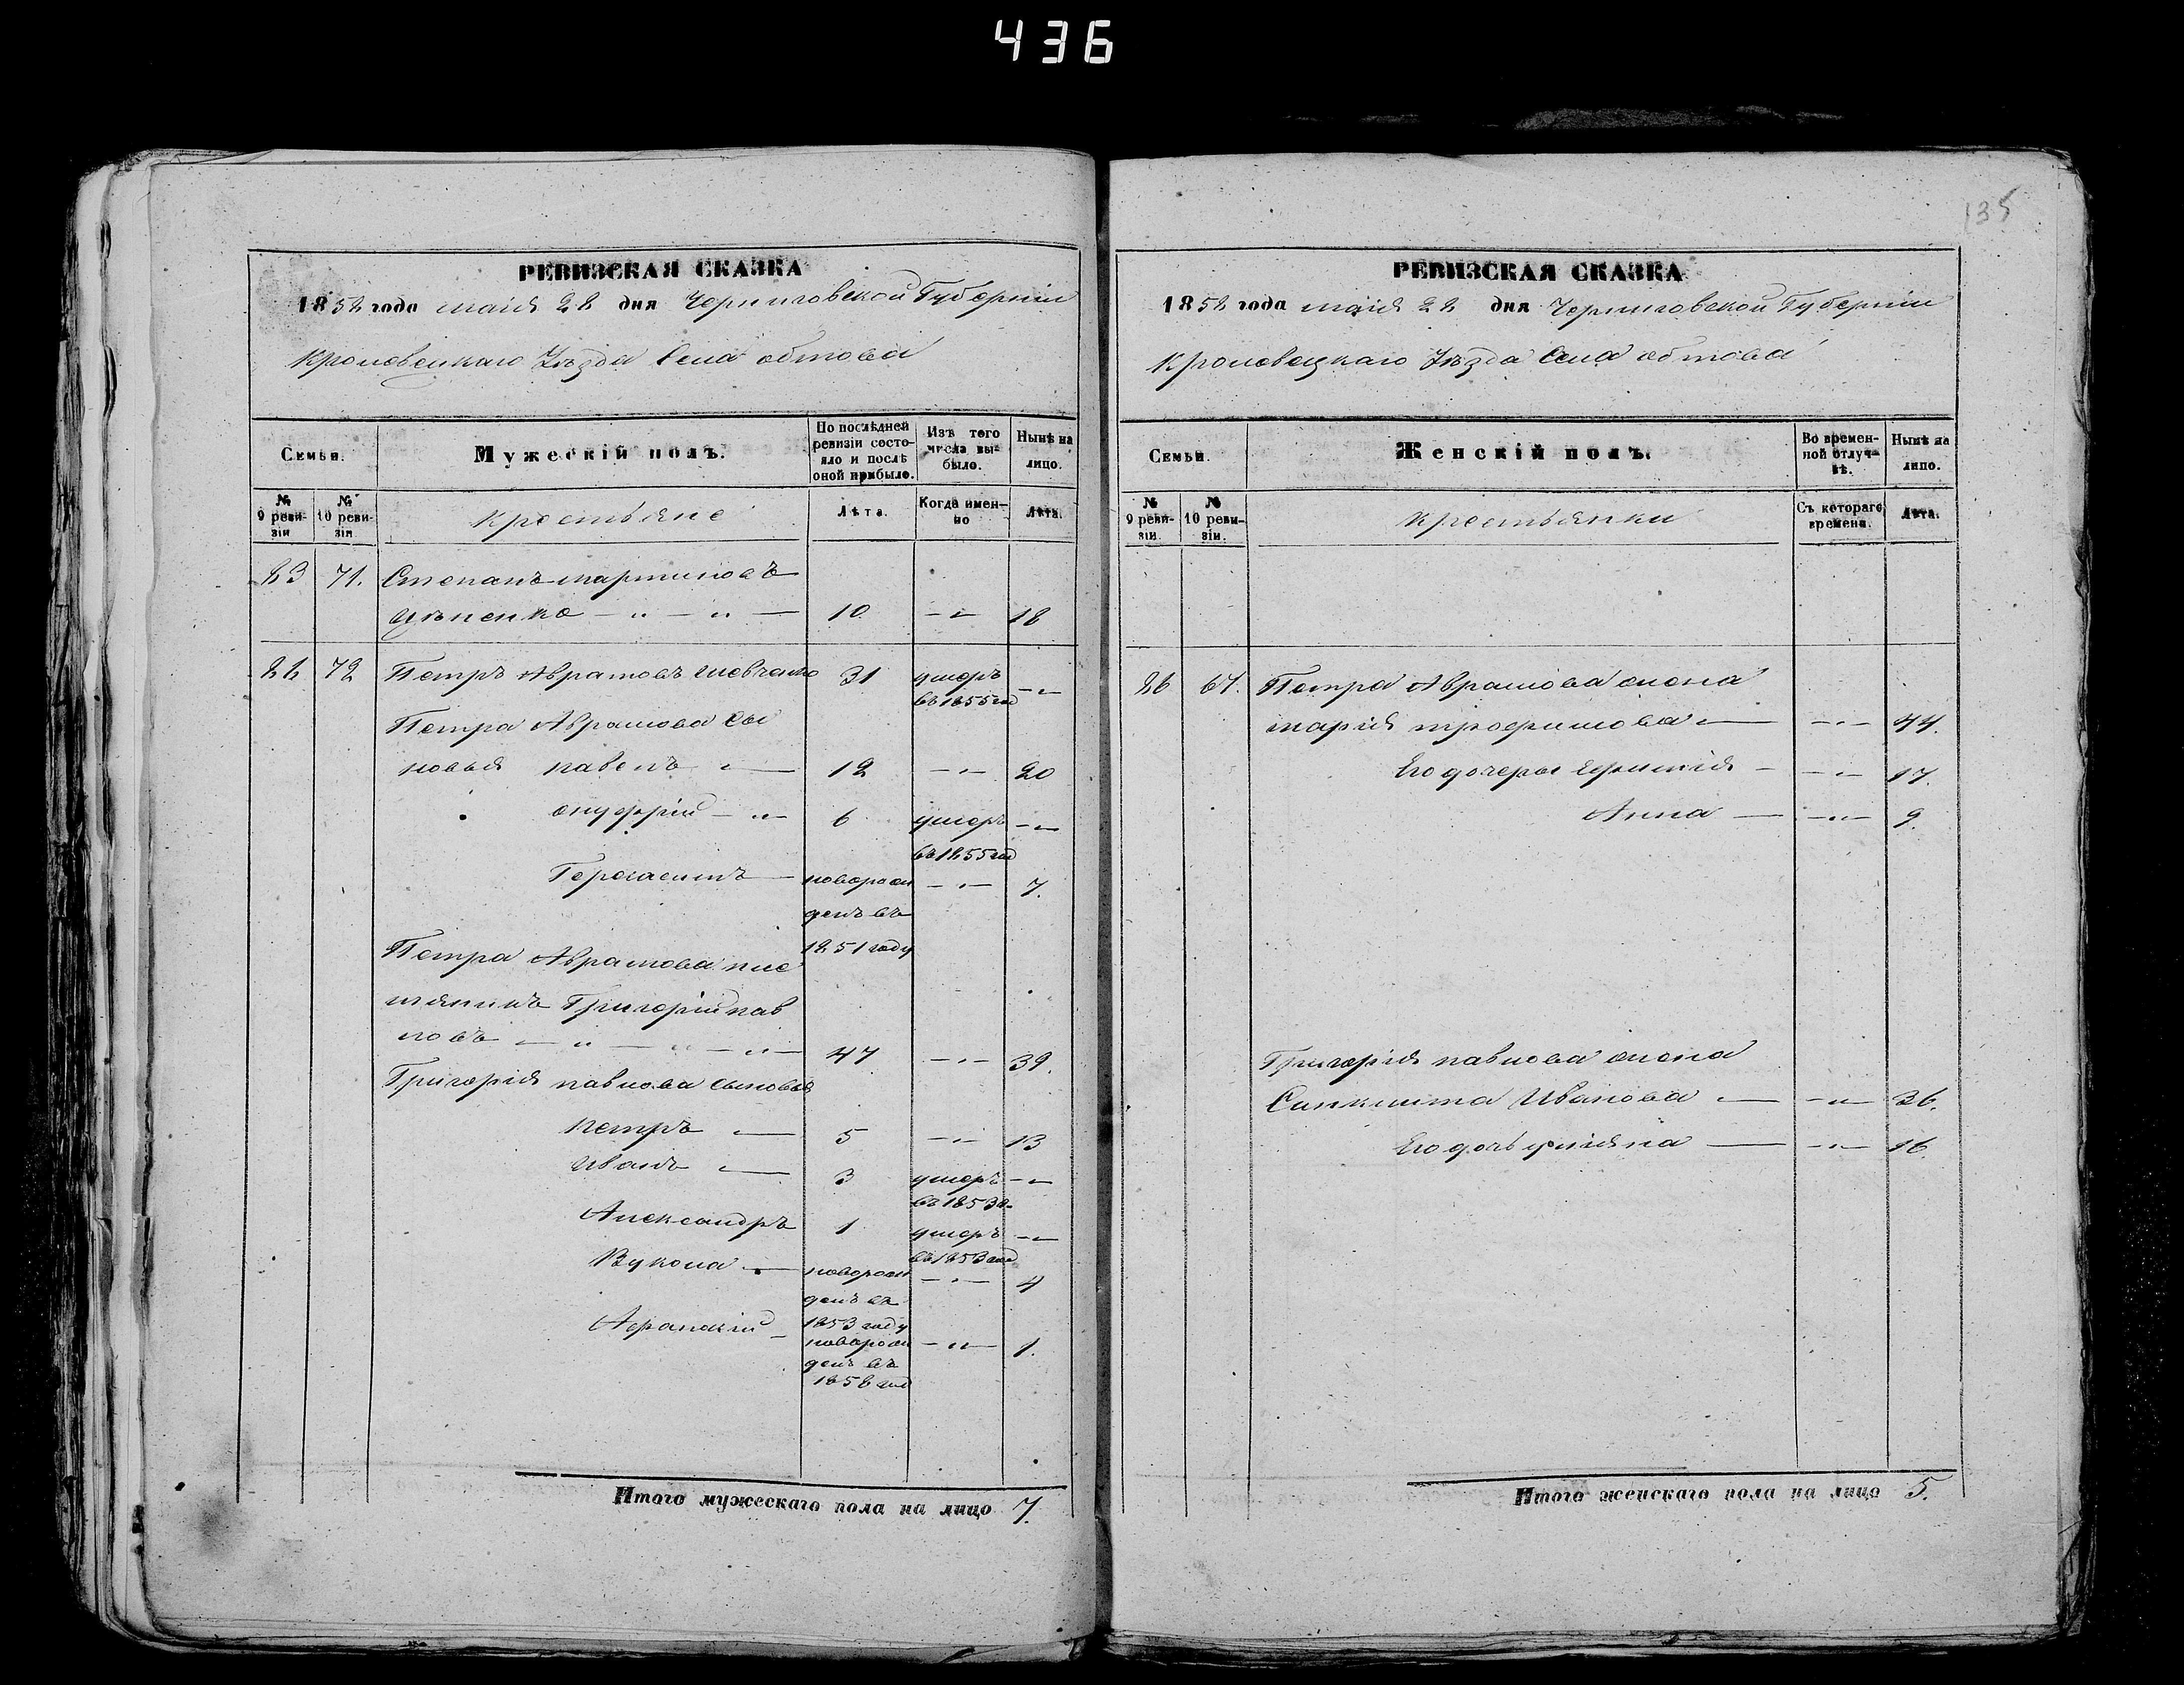 436
135
РЕВИЗСКАЯ СКАЗКА
1858 года маія 28 дня Черниговской Губерніи
Кролевецкаго Уѣзда Села обтова
Семьи.
Мужескій полъ.
По послѣдней ревизіи состояло и послѣ оной прибыло.
Изъ того числа выбыло.
Нынѣ на лицо.
№ 9 ревизіи
№ 10 ревизіи
крестьяне
Лѣта.
Когда именно
Лѣта.
83 71. Степанъ мартиновъ
Цѣпенко 10 18
72 Петръ Аврамовъ шевченко 31 умеръ
въ 1855 год
Петра Аврамова сы
новья павелъ 12 20
онуфрій 6 умеръ
въ 1855 год
Герасимъ новорож 7.
денъ въ
1851 году
Петра Аврамова пле
мяникъ Григорій пав
ловъ 47 39.
Григорія павлова сыновья
петръ 5 13
иванъ 3 умеръ
въ 1853 г.
Александръ 1 умеръ
въ 1853 год
Вукола новорож 4
денъ въ
1853 году
новорож 1.
денъ въ
1858 год
Итого мужескаго пола на лицо 7.
РЕВИЗСКАЯ СКАЗКА
1858 года маія 28 дня Черниговской Губерніи
Кролевецкаго Уѣзда Села обтова
Семьи.
Женскій полъ.
Во временной отлучкѣ.
Нынѣ на лицо.
№ 9 ревизіи.
№ 10 ревизіи.
крестьянки
Съ котораго времени.
Лѣта.
Петра Аврамова жена
марія трофимова 44.
Его дочеры 17.
Анна 9.
Григорія павлова жена
Иванова 36.
Его дочь уліяна 16.
Итого женскаго пола на лицо 5.